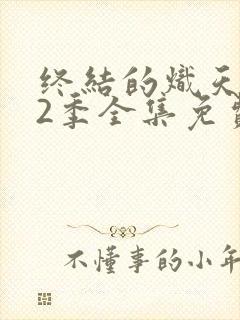 终结的炽天
2季全集免费
不懂事的小年